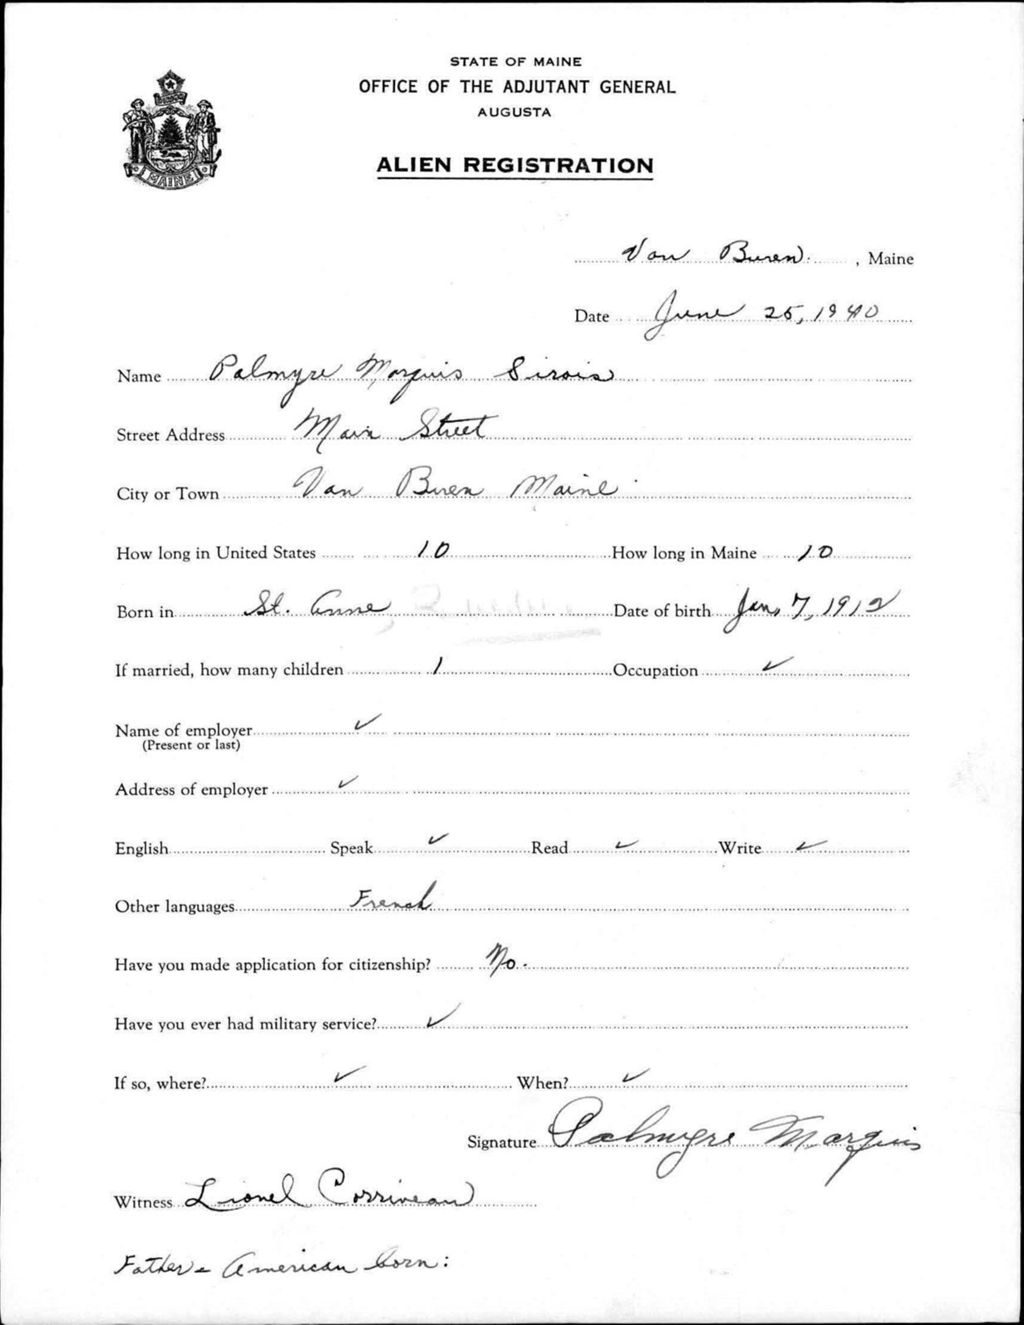 STATE OF MAINE
OFFICE OF THE ADJUTANT GENERAL
AUGUSTA
ALIEN REGISTRATION
MAINE
Van Buren, Maine
Date June 25, 1940
Name Palmyre Marquis Sirois
Street Address Main Street
City or Town Van Buren Maine
How long in United States 10 How long in Maine 10
Born in St. Anne Date of birth Jan, 7, 1912
If married, how many children 1 Occupation ✓
Name of employer ✓
(Present or last)
Address of employer ✓
English Speak ✓ Read ✓ Write ✓
Other languages French
Have you made application for citizenship? No.
Have you ever had military service? ✓
If so, where? ✓ When? ✓
Signature Palmyre Marquis
Witness Lionel Corriveau
Father - American born: